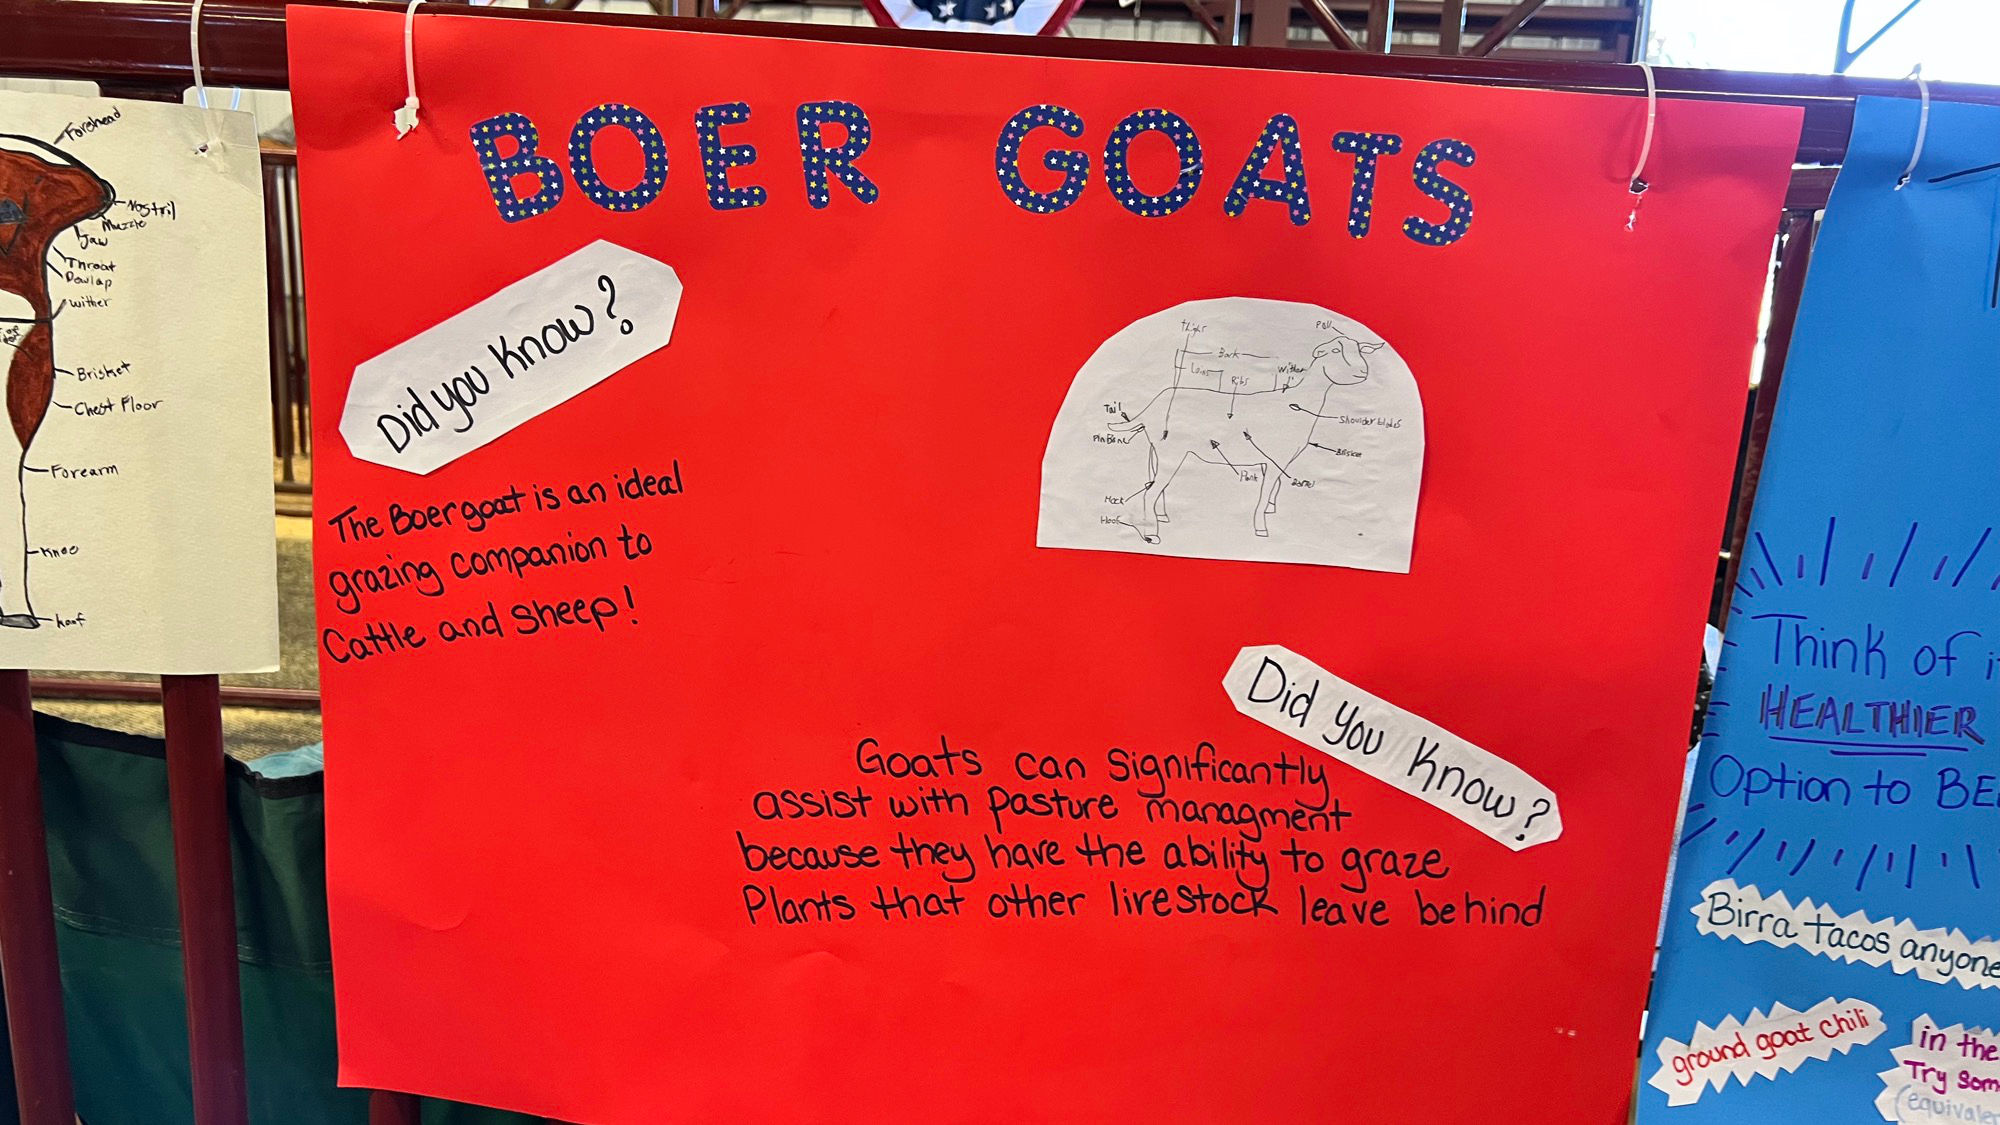 Forehead
Nostril
Muzzle
Jaw
Throat
Dewlap
wither
Brisket
Chest Floor
Forearm
Knee
hoof
BOER GOATS
Did you Know?
The Boer goat is an ideal
grazing companion to
Cattle and sheep!
thighs
Poll
Back
Loins
Ribs
Wither
Tail
Pin Bone
Shoulder blades
Brisket
Flank
Barrel
Hock
Hoof
Did you Know?
Goats can significantly
assist with pasture managment
because they have the ability to graze
Plants that other livestock leave behind
Think of
HEALTHIER
Option to
Birra tacos anyone
ground goat chili
in the
Try